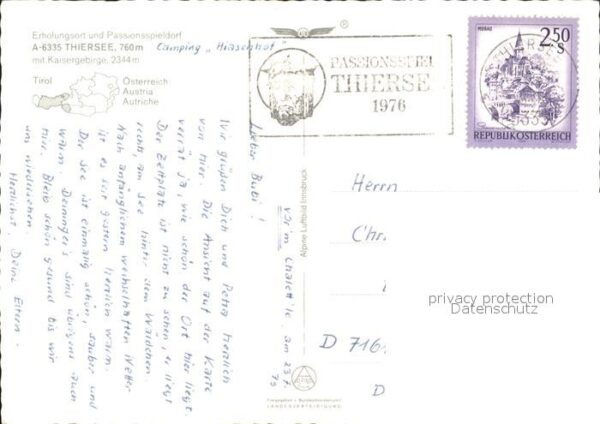 Erholungsort und Passionsspieldorf
A-6335 THIERSEE, 760m
mit Kaisergebirge, 2344m
Tirol
Österreich
Austria
Autriche
Camping "Hiasenhof"
PASSIONSSPIEL
THIERSEE
1976
6335
MURAU
2.50
S
REPUBLIK ÖSTERREICH
Alpine Luftbild Innsbruck
Lieber Bubi!
Wir grüßen Dich und Petra herzlich
von hier. Die Ansicht auf der Karte
verrät ja, wie schön der Ort hier liegt.
Der Zeltplatz ist nicht zu sehen, er liegt
rechts am See hinter dem Wäldchen.
Nach anfänglichem wechselhaften Wetter
ist es seit gestern herrlich warm.
Der See ist einmalig schön, sauber und
warm. Denninger's sind übrigens auch
hier. Bleib schön gesund bis wir
uns wiedersehen
Herzlichst Deine Eltern.
am 23.7.
Herrn
Chr.
D 716
D
privacy protection
Datenschutz
Freigegeben v. Bundesministerium f.
LANDESVERTEIDIGUNG